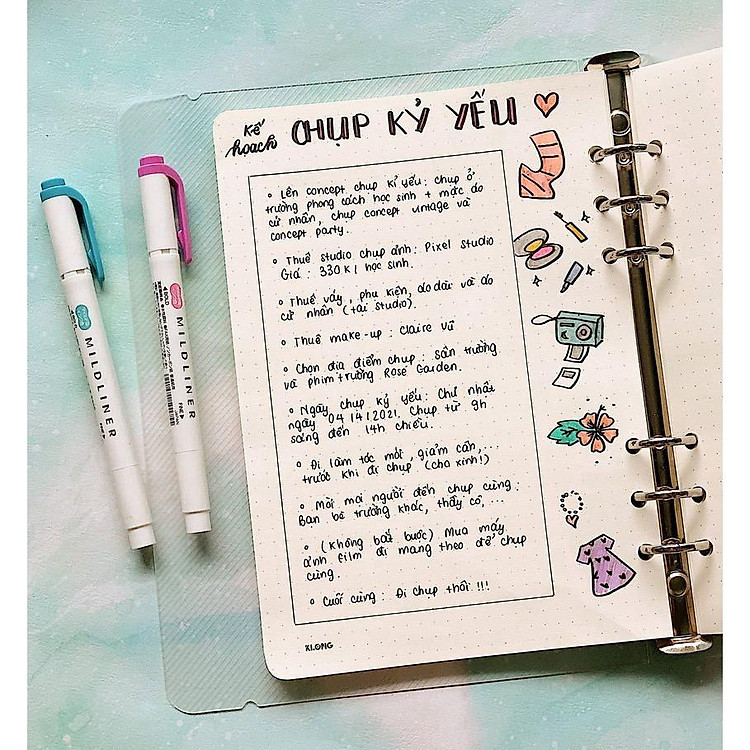 Kế hoạch CHỤP KỶ YẾU
• Lên concept chụp kỉ yếu: chụp ở
trường phong cách học sinh + mặc áo
cử nhân, chụp concept vintage và
concept party.
• Thuê studio chụp ảnh: Pixel studio
Giá: 330K/học sinh.
• Thuê váy, phụ kiện, áo dài và áo
cử nhân (tại studio).
• Thuê make-up: Claire Vũ
• Chọn địa điểm chụp: sân trường
và phim trường Rose Garden.
• Ngày chụp kỷ yếu: Chủ nhật
ngày 04/4/2021. Chụp từ 9h
sáng đến 14h chiều.
• Đi làm tóc mới, giảm cân,...
trước khi đi chụp (cho xinh!)
• Mời mọi người đến chụp cùng:
Bạn bè trường khác, thầy cô,...
• (Không bắt buộc) Mua máy
ảnh film đi mang theo để chụp
cùng.
• Cuối cùng: Đi chụp thôi!!!
KLONG
MILDLINER
MILDLINER